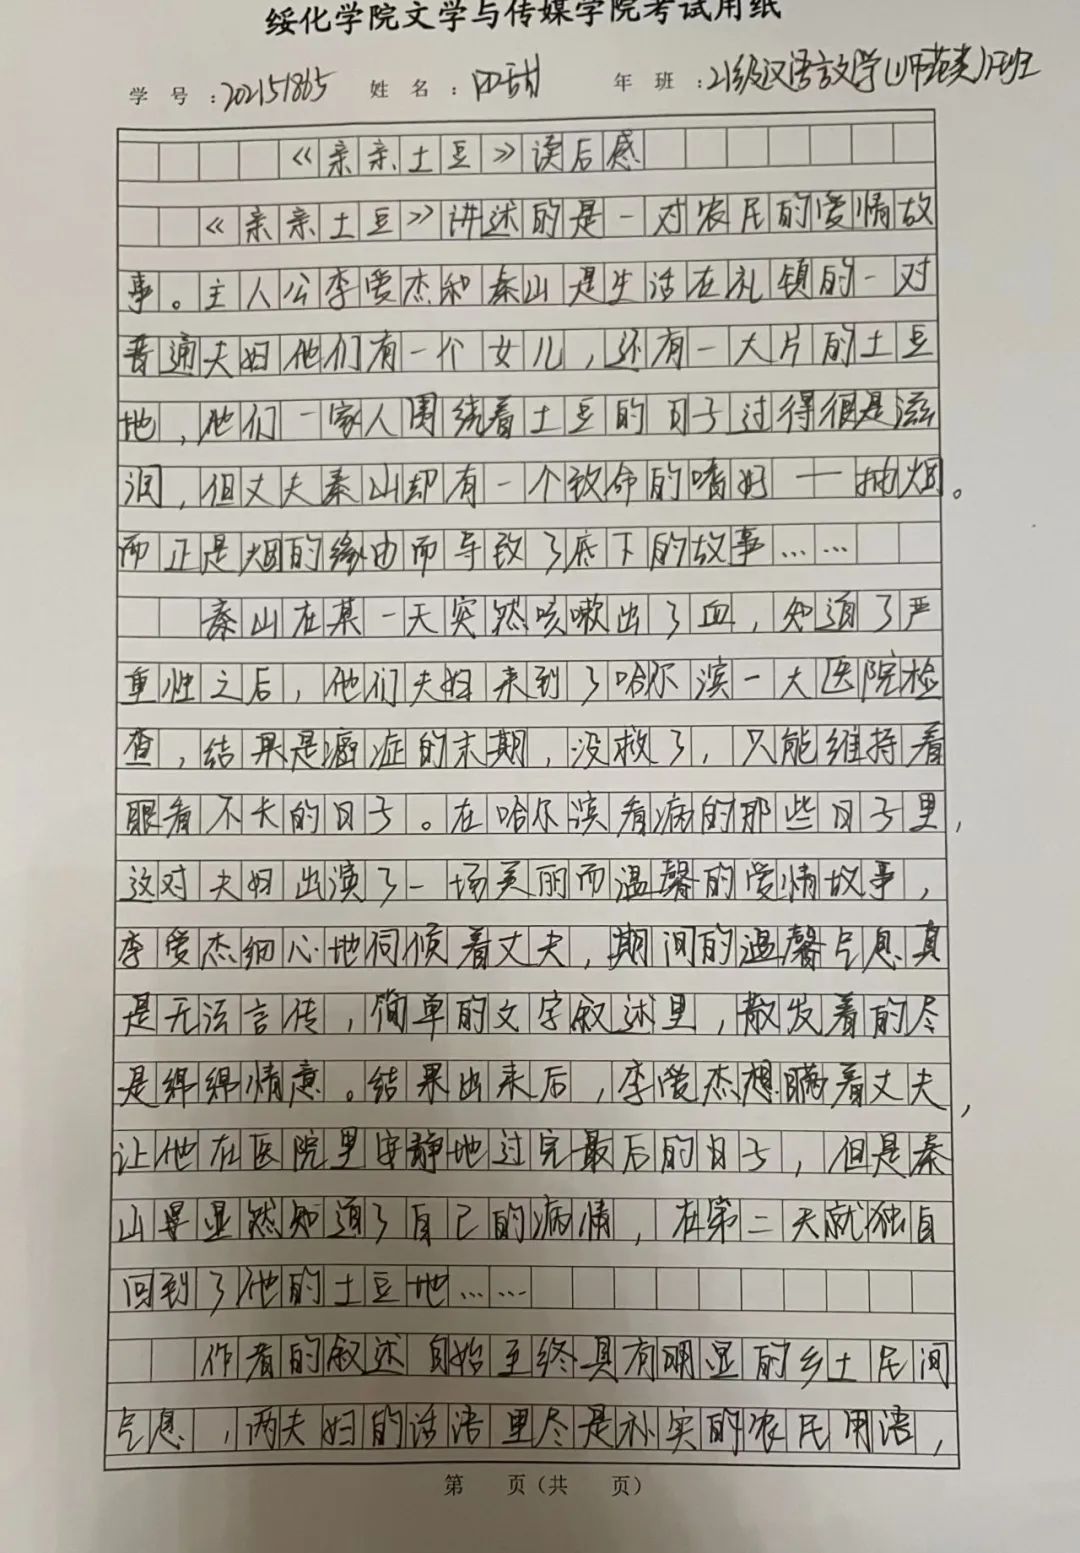 绥化学院文学与传媒学院考试用纸
学号：202151865 姓名：田甜 年班：21级汉语言文学(师范类)班
《亲亲土豆》读后感
《亲亲土豆》讲述的是一对农民的爱情故
事。主人公李爱杰和秦山是生活在礼镇的一对
普通夫妇他们有一个女儿，还有一大片的土豆
地，他们一家人围绕着土豆的日子过得很是滋
润，但丈夫秦山却有一个致命的嗜好——抽烟。
而正是烟的缘由而导致了底下的故事……
秦山在某一天突然咳嗽出了血，知道了严
重性之后，他们夫妇来到了哈尔滨一大医院检
查，结果是癌症的末期，没救了，只能维持着
眼看不长的日子。在哈尔滨看病的那些日子里，
这对夫妇出演了一场美丽而温馨的爱情故事，
李爱杰细心地伺候着丈夫，期间的温馨气息真
是无法言传，简单的文字叙述里，散发着的尽
是绵绵情意。结果出来后，李爱杰想瞒着丈夫，
让他在医院里安静地过完最后的日子，但是秦
山是显然知道了自己的病情，在第二天就独自
回到了他的土豆地……
作者的叙述自始至终具有明显的乡土民间
气息，两夫妇的话语里尽是朴实的农民用语，
第 页（共 页）